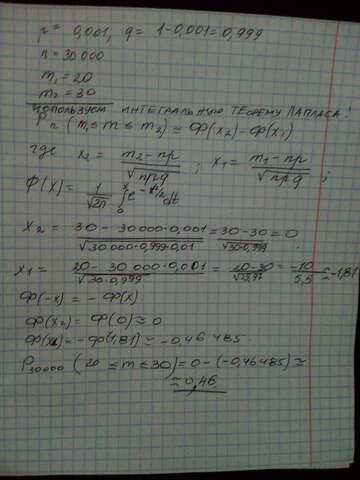 p = 0,001, q = 1-0,001 = 0,999
n = 30.000
m₁ = 20
m₂ = 30
используем интегральную теорему Лапласа:
Pₙ (m₁ ≤ m ≤ m₂) ≈ Ф(x₂) - Ф(x₁)
где x₂ = (m₂ - np)/√(npq) ; x₁ = (m₁ - np)/√(npq) ;
Ф(x) = 1/√(2π) ∫₀ˣ e^(-t²/2) dt
x₂ = (30 - 30000·0,001)/√(30000·0,999·0,01) = (30-30)/√(30·0,999) = 0
x₁ = (20 - 30000·0,001)/√(30·0,999) = (20-30)/√(29,97) = -10/5,5 ≈ -1,81
Ф(-x) = - Ф(x).
Ф(x₂) = Ф(0) ≈ 0
Ф(x₁) = - Ф(1,81) ≈ -0,46485.
P₃₀₀₀₀ (20 ≤ m ≤ 30) = 0 - (-0,46485) ≈
≈ 0,46